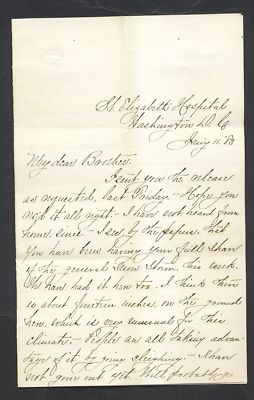 St. Elizabeth Hospital
Washington D. C.
Jany 11 '8
My dear Brother.
I sent you the release
as requested, last Friday. - Hope you
rec'd it all right. - I have not heard from
home, since - I see, by the papers, that
you have been having your full share
of the general Snow Storm, this week.
We have had it here too. I think there
is about fourteen inches, on the ground
here, which is very unusual for this
climate. - People are all taking advan-
tage of it, by going sleighing. - I have
not gone out yet. Will probably go